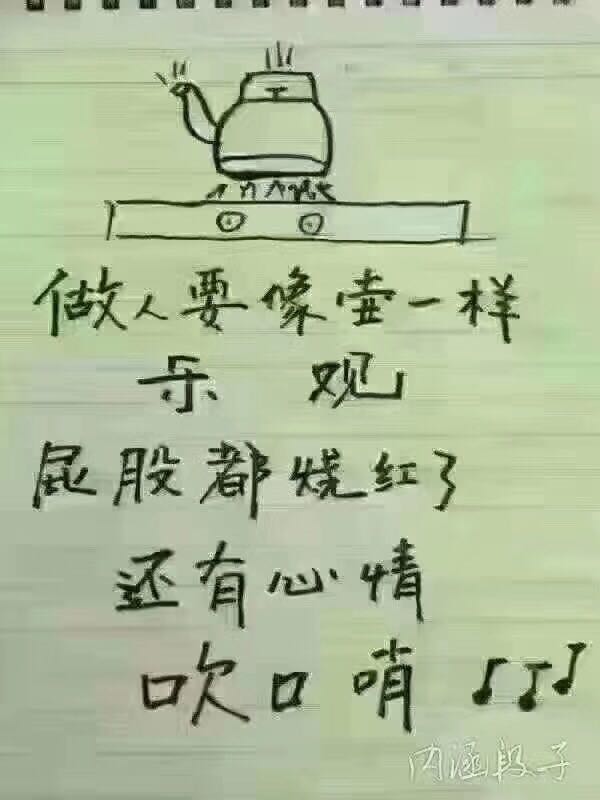 做人要像壶一样
乐 观
屁股都烧红了
还有心情
吹口哨
内涵段子